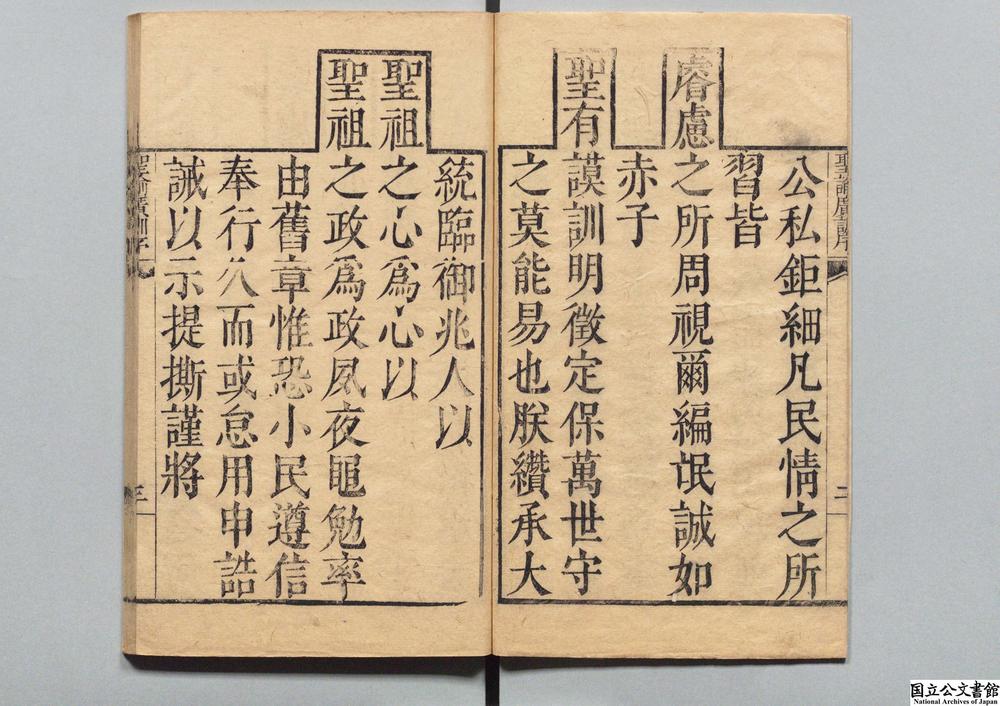 聖諭廣訓序
二
公私鉅細凡民情之所
習皆
睿慮之所周視爾編氓誠如
赤子
聖有謨訓明徵定保萬世守
之莫能易也朕纘承大
統臨御兆人以
聖祖之心爲心以
聖祖之政爲政夙夜黽勉率
由舊章惟恐小民遵信
奉行久而或怠用申誥
誡以示提撕謹將
聖諭廣訓序
三
国立公文書館
National Archives of Japan